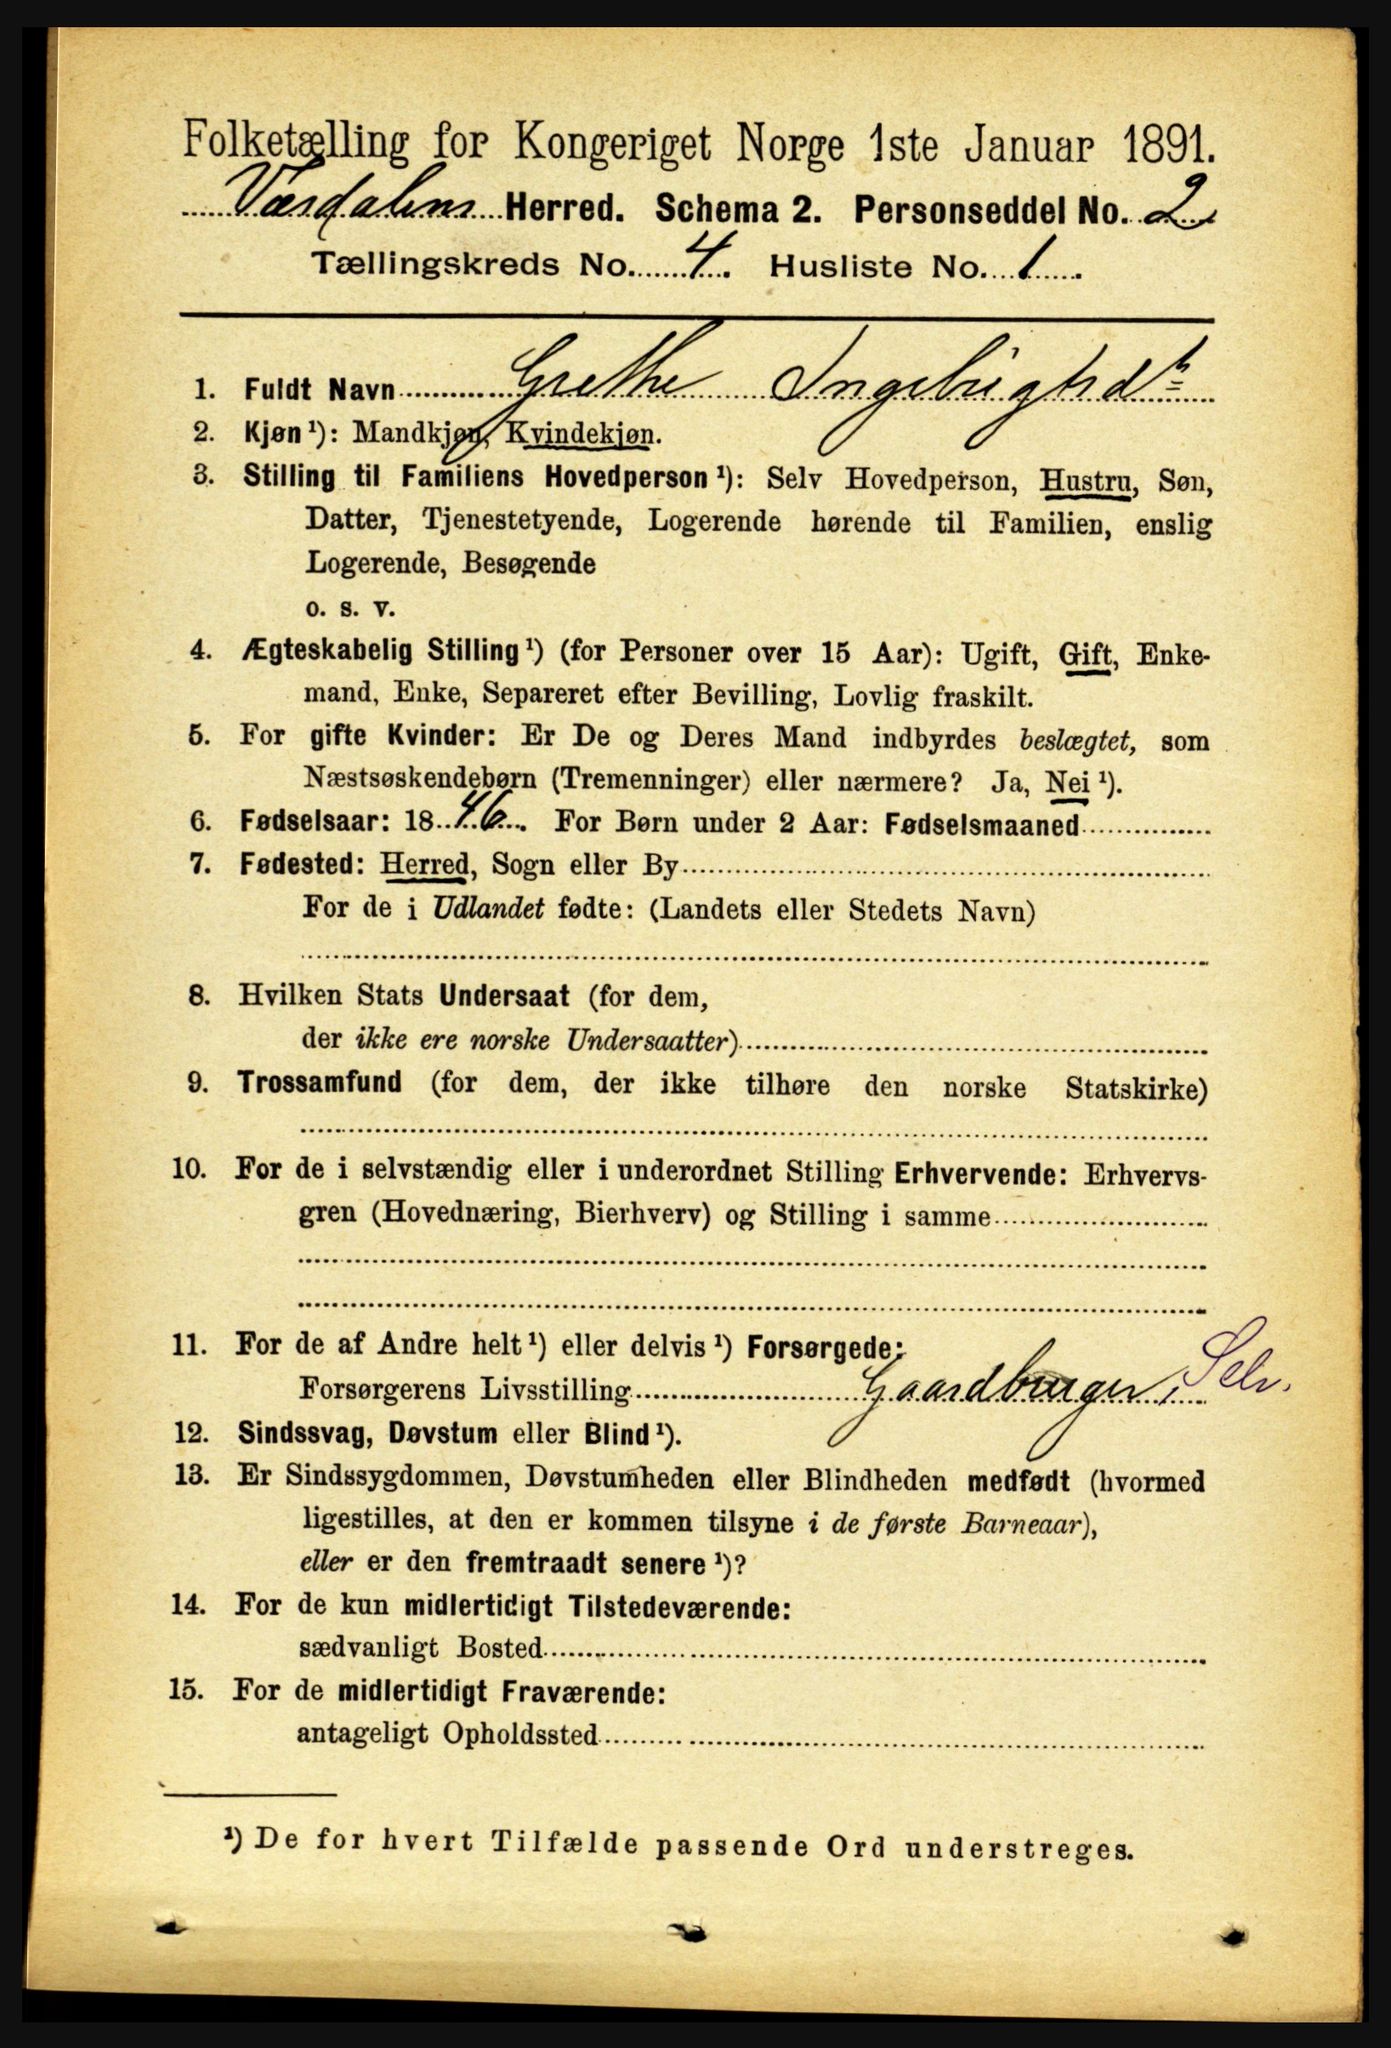 Folketælling for Kongeriget Norge 1ste Januar 1891.
Værdalens Herred. Schema 2. Personseddel No. 2
Tællingskreds No. 4. Husliste No. 1.
1. Fuldt Navn Grethe Ingebrigtsdtr
2. Kjøn ¹): Mandkjøn, Kvindekjøn.
3. Stilling til Familiens Hovedperson ¹): Selv Hovedperson, Hustru, Søn,
Datter, Tjenestetyende, Logerende hørende til Familien, enslig
Logerende, Besøgende
o. s. v.
4. Ægteskabelig Stilling ¹) (for Personer over 15 Aar): Ugift, Gift, Enke-
mand, Enke, Separeret efter Bevilling, Lovlig fraskilt.
5. For gifte Kvinder: Er De og Deres Mand indbyrdes beslægtet, som
Næstsøskendebørn (Tremenninger) eller nærmere? Ja, Nei ¹).
6. Fødselsaar: 1846. For Børn under 2 Aar: Fødselsmaaned
7. Fødested: Herred, Sogn eller By
For de i Udlandet fødte: (Landets eller Stedets Navn)
8. Hvilken Stats Undersaat (for dem,
der ikke ere norske Undersaatter)
9. Trossamfund (for dem, der ikke tilhøre den norske Statskirke)
10. For de i selvstændig eller i underordnet Stilling Erhvervende: Erhvervs-
gren (Hovednæring, Bierhverv) og Stilling i samme
11. For de af Andre helt ¹) eller delvis ¹) Forsørgede:
Forsørgerens Livsstilling Gaardbruger, Selv.
12. Sindssvag, Døvstum eller Blind ¹).
13. Er Sindssygdommen, Døvstumheden eller Blindheden medfødt (hvormed
ligestilles, at den er kommen tilsyne i de første Barneaar),
eller er den fremtraadt senere ¹)?
14. For de kun midlertidigt Tilstedeværende:
sædvanligt Bosted
15. For de midlertidigt Fraværende:
antageligt Opholdssted
¹) De for hvert Tilfælde passende Ord understreges.